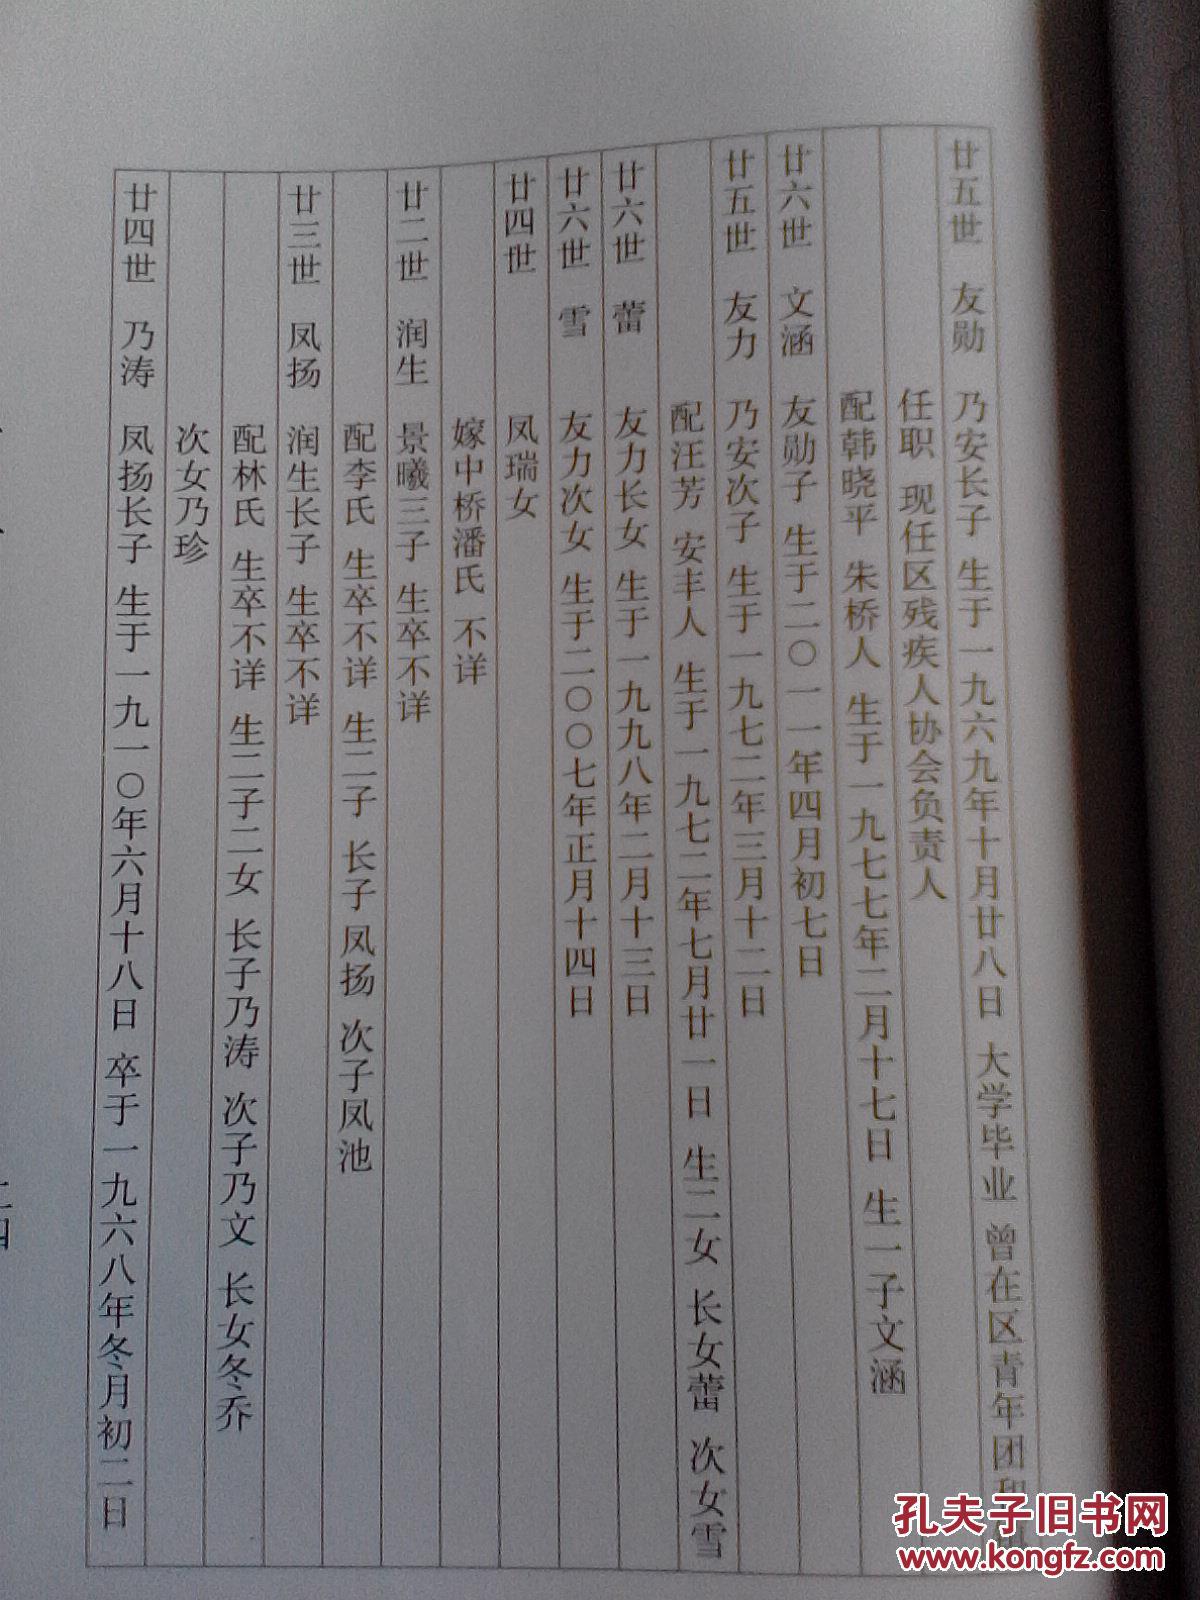 廿五世 友勋 乃安长子 生于一九六九年十月廿八日 大学毕业 曾在区青年团和
任职 现任区残疾人协会负责人
配韩晓平 朱桥人 生于一九七七年二月十七日 生一子文涵
廿六世 文涵 友勋子 生于二〇一一年四月初七日
廿五世 友力 乃安次子 生于一九七二年三月十二日
配汪芳 安丰人 生于一九七二年七月廿一日 生二女 长女蕾 次女雪
廿六世 蕾 友力长女 生于一九九八年二月十三日
廿六世 雪 友力次女 生于二〇〇七年正月十四日
廿四世 凤瑞女
嫁中桥潘氏 不详
廿二世 润生 景曦三子 生卒不详
配李氏 生卒不详 生二子 长子凤扬 次子凤池
廿三世 凤扬 润生长子 生卒不详
配林氏 生卒不详 生二子二女 长子乃涛 次子乃文 长女冬乔
次女乃珍
廿四世 乃涛 凤扬长子 生于一九一〇年六月十八日 卒于一九六八年冬月初二日
孔夫子旧书网
www.kongfz.com